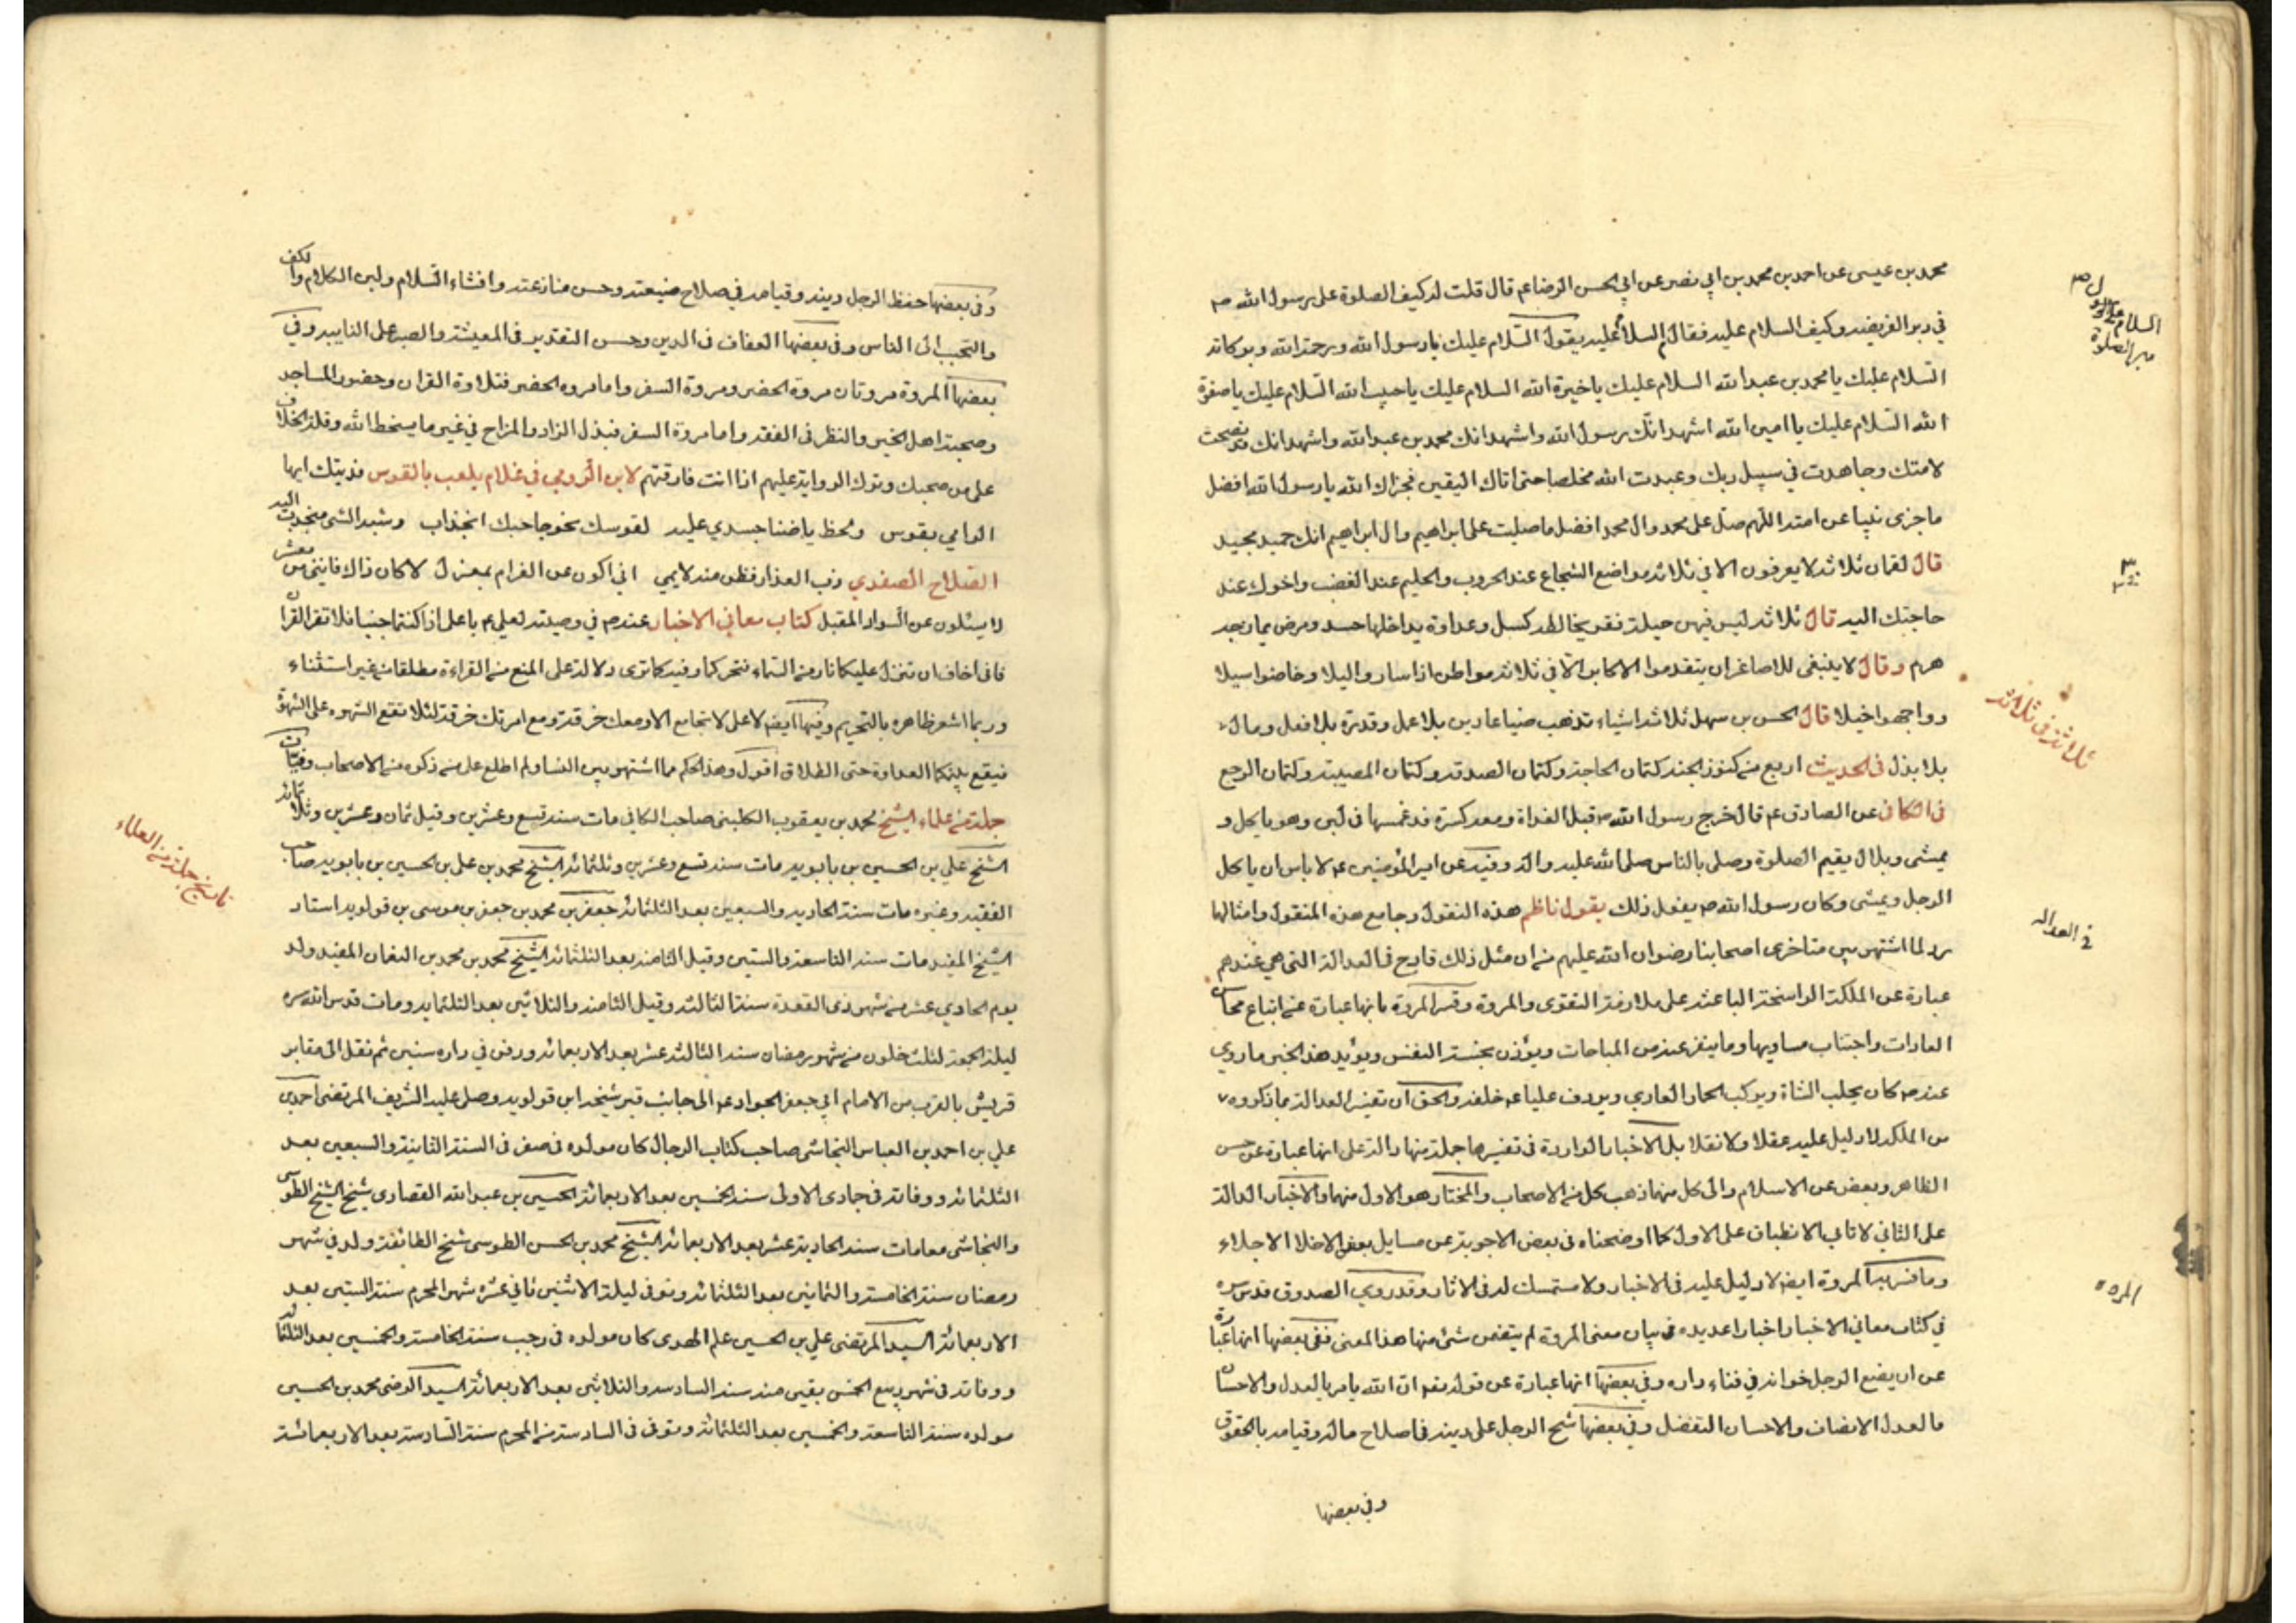 محمد بن عيسى عن احمد بن محمد بن ابي نصر عن ابي الحسن الرضا ع م قال قلت له كيف الصلوة على رسول الله ص
في دبر الفريضه وكيف السلام عليه فقال ع السلام عليه يقول السلام عليك يا رسول الله ورحمة الله وبركاته
السلام عليك يا محمد بن عبد الله السلام عليك يا خيرة الله السلام عليك يا حبيب الله السلام عليك يا صفوة
الله السلام عليك يا امين الله اشهد انك رسول الله واشهد انك محمد بن عبد الله واشهد انك قد نصحت
لامتك وجاهدت في سبيل ربك وعبدت الله مخلصا حتى اتاك اليقين فجزاك الله يا رسول الله افضل
ما جزى نبيا عن امته اللهم صل على محمد وال محمد افضل ما صليت على ابراهيم وال ابراهيم انك حميد مجيد
قال لقمان ثلاثة لا يعرفون الا في ثلاثة مواضع الشجاع عند الحروب والحليم عند الغضب واخوك عند
حاجتك اليه قال ثلاثة ليس فيهن حيلة فقر يخالطه كسل وعداوة يداخلها حسد ومرض يمازجه
هرم وقال لا ينبغي للاصاغر ان يتقدموا الاكابر الا في ثلاثة مواطن اذا ساروا ليلا وخاضوا سيلا
وواجهوا خيلا قال الحسن بن سهل ثلاثة اشياء تذهب ضياعا دين بلا عمل وقدرة بلا فعل ومال
بلا بذل في الحديث اربع من كنوز الجنة كتمان الحاجة وكتمان الصدقة وكتمان المصيبة وكتمان الوجع
في الكافي عن الصادق ع م قال خرج رسول الله ص قبل الغداة ومعه كسرة قد غمسها في لبن وهو ياكل و
يمشي وبلال يقيم الصلوة وصلى بالناس صلى الله عليه واله وفيه عن امير المؤمنين ع م لا باس ان ياكل
الرجل ويمشي وكان رسول الله ص يفعل ذلك يقول ناظم هذه النقول وجامع هذه المنقول وامثالها
رد لما اشتهر بين متاخري اصحابنا رضوان الله عليهم من ان مثل ذلك قادح في العدالة التي هي عندهم
عبارة عن الملكة الراسخة الباعثة على ملازمة التقوى والمروة وفسر المروة بانها عبارة عن اتباع محاسن
العادات واجتناب مساويها وما ينفر عنه من المباحات ويؤذن بخسة النفس ويؤيد هذا الخبر ما روي
عنه ص كان يحلب الشاة ويركب الحمار العاري ويردف عليا ع م خلفه والحق ان تفسير العدالة بما ذكروه
من الملكة لا دليل عليه عقلا ولا نقلا بل الاخبار الواردة في تفسيرها جملة منها دالة على انها عبارة عن حسن
الظاهر وبعض عن الاسلام والى كل منهما ذهب كل من الاصحاب والمختار هو الاول منهما والاخبار الدالة
على الثاني لا تابى الانطباق على الاول كما اوضحناه في بعض الاجوبة عن مسايل بعض الاخلا الاجلاء
وما فسر به المروة ايضا لا دليل عليه في الاخبار ولا مستمسك له في الاثار وقد روي الصدوق قدس سره
في كتاب معاني الاخبار اخبارا عديده في بيان معنى المروة لم يتضمن شئ منها هذا المعنى ففي بعضها انها عبارة
عن ان يضع الرجل خوانه في فناء داره وفي بعضها انها عبارة عن قوله تعه ان الله يامر بالعدل والاحسان
فالعدل الانصاف والاحسان التفضل وفي بعضها شح الرجل على دينه في اصلاح ماله وقيامه بالحقوق
وفي بعضها
السلام على الرسول ص
دبر الصلوة
ثلاثة في ثلاثة
في العداله
المروه
وفي بعضها حفظ الرجل دينه وقيامه في صلاح ضيعته وحسن منازعته وافشاء السلام ولين الكلام والكف
والتحبب الى الناس وفي بعضها العفاف في الدين وحسن التقدير في المعيشة والصبر على النايبه وفي
بعضها المروة مروتان مروة الحضر ومروة السفر واما مروه الحضر فتلاوة القران وحضور المساجد
وصحبة اهل الخير والنظر في الفقه واما مروة السفر فبذل الزاد والمزاح في غير ما يسخط الله وقلة الخلاف
على من صحبك وترك الرواية عليهم اذا انت فارقتهم لابن الرومي في غلام يلعب بالقوس فديتك ايها
الرامي بقوس ولحظ يا ضنا جسدي عليه لقوسك نحو حاجبك انجذاب وشبه الشئ منجذب اليه
الصلاح الصفدي دب العذار فظن منه لايمي اني اكون عن الغرام بمعزل لا كان ذاك فانني من معشر
لا يسئلون عن السواد المقبل كتاب معاني الاخبار عنه ص في وصيته لعلي ع م يا علي اذا كنتما جنبا فلا تقرا القران
فاني اخاف ان تنزل عليكما نار من السماء فتحرقكما وفيه كما ترى دلالة على المنع من القراءة مطلقا من غير استثناء
وربما اشعر ظاهره بالتحريم وفيها ايضا لا على لا تجامع الا ومعك خرقة ومع امرتك خرقة لئلا تقع الشهوه على الشهوة
فيقع بينكما العداوة حتى الطلاق اقول وهذا الحكم مما اشتهر بين النسا ولم اطلع على من ذكره من الاصحاب وفيات
جملة من علماء الشيخ محمد بن يعقوب الكليني صاحب الكافي مات سنة تسع وعشرين وقيل ثمان وعشرين وثلاثمائة
الشيخ علي بن الحسين بن بابويه مات سنة تسع وعشرين وثلثمائة الشيخ محمد بن علي بن الحسين بن بابويه صاحب
الفقيه وغيره مات سنة الحاديه والسبعين بعد الثلثمائة جعفر بن محمد بن جعفر بن موسى بن قولويه استاد
الشيخ المفيد مات سنة التاسعة والستين وقيل الثامنة بعد الثلثمائة الشيخ محمد بن محمد بن النعمان المفيد ولد
يوم الحادي عشر من شهر ذى القعدة سنة الثالثة وقيل الثامنة والثلاثين بعد الثلثمايه ومات قدس الله سره
ليلة الجمعة لثلث خلون من شهر رمضان سنة الثالثة عشر بعد الاربعمائة ودفن في داره سنين ثم نقل الى مقابر
قريش بالقرب من الامام ابي جعفر الجواد ع م الى جانب قبر شيخه ابن قولويه وصلى عليه الشريف المرتضى احمد بن
علي بن احمد بن العباس النجاشي صاحب كتاب الرجال كان مولده في صفر في السنة الثانية والسبعين بعد
الثلثمائة ووفاته في جمادى الاولى سنة الخمسين بعد الاربعمائة الحسين بن عبد الله الغضاري شيخ الشيخ الطوسي
والنجاشي معا مات سنة الحادية عشر بعد الاربعمائة الشيخ محمد بن الحسن الطوسي شيخ الطائفة ولد في شهر
رمضان سنة الخامسة والثمانين بعد الثلثمائة وتوفي ليلة الاثنين ثاني عشر شهر المحرم سنة الستين بعد
الاربعمائة السيد المرتضى علي بن الحسين علم الهدى كان مولده في رجب سنة الخامسة والخمسين بعد الثلثمائة
ووفاته في شهر ربيع الخمس بقين منه سنة السادسه والثلاثين بعد الاربعمائة السيد الرضي محمد بن الحسين
مولده سنة التاسعة والخمسين بعد الثلثمائة وتوفي في السادسة من المحرم سنة السادسة بعد الاربعمائة
تاريخ جملة من العلماء